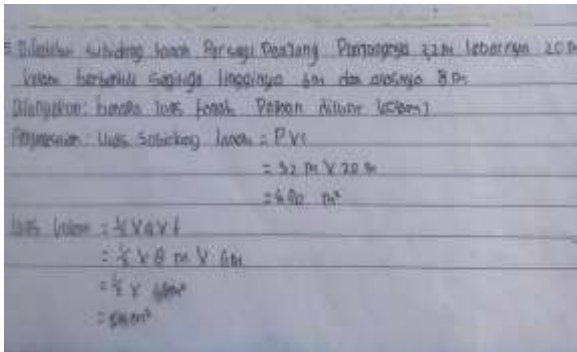 Diketahui sebidang tanah Persegi Panjang Panjangnya 32 m lebarnya 20 m
kolam berbentuk segitiga tingginya 6m dan alasnya 8 m
Ditanyakan: berapa luas tanah Paman diluar kolam?
Penyelesaian: Luas Sebidang tanah = P x l
= 32 m x 20 m
= 640 m²
luas kolam = ½ x a x t
= ½ x 8 m x 6m
= ½ x 48m²
= m²